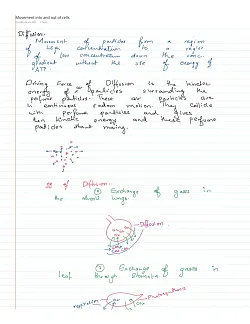 Movement into and out of cells
Diffusion:
Movement of particles from a region
of high concentration to a region
of low concentration down the conc.
gradient without the use of energy of
ATP
Driving Force of Diffusion is the kinetic
energy of particles surrounding the
perfume particles. These air particles are
in continuous random motion. They collide
with perfume particles and gives
them kinetic energy and these perfume
particles start moving.
of Diffusion:
① Exchange of gases in
the alveoli lungs
Diffusion
② Exchange of gases in
leaf through stomata
respiration
Photosynthesis